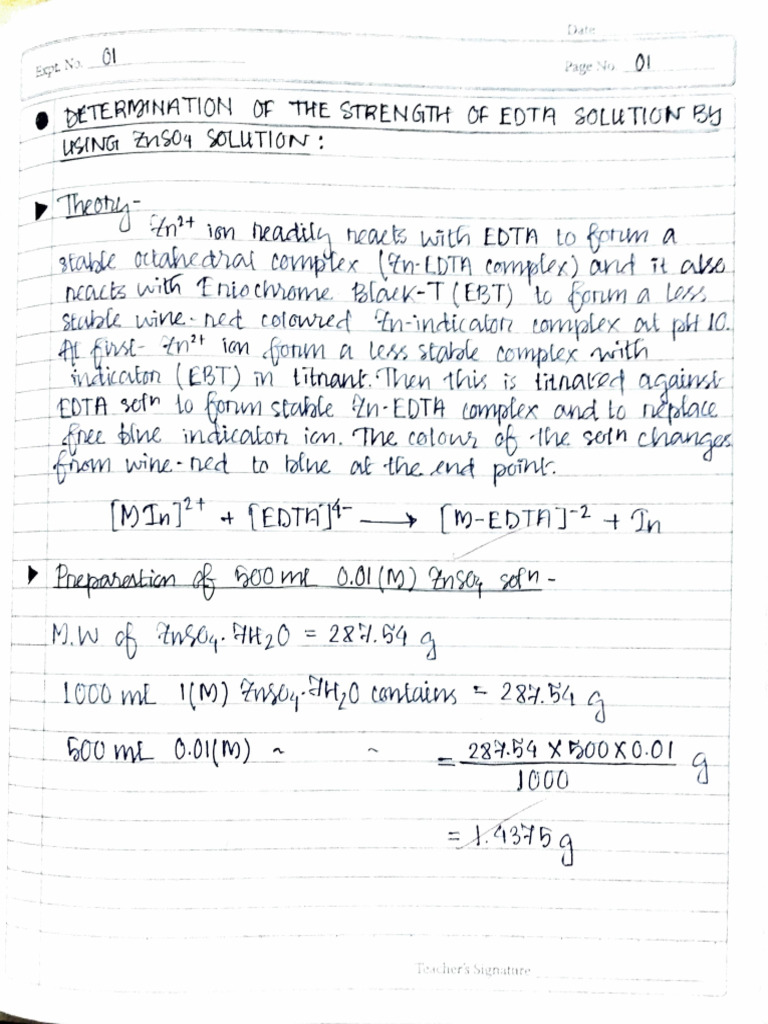 Date
Expt. No. 01
Page No. 01
● DETERMINATION OF THE STRENGTH OF EDTA SOLUTION BY
USING ZnSO4 SOLUTION :
▶ Theory-
Zn²⁺ ion readily reacts with EDTA to form a
stable octahedral complex (Zn-EDTA complex) and it also
reacts with Eriochrome Black-T (EBT) to form a less
stable wine-red coloured Zn-indicator complex at pH 10.
At first- Zn²⁺ ion form a less stable complex with
indicator (EBT) in titrant. Then this is titrated against
EDTA soln to form stable Zn-EDTA complex and to replace
free blue indicator ion. The colour of the soln changes
from wine-red to blue at the end point.
[MIn]²⁺ + [EDTA]⁴⁻ ⟶ [M-EDTA]⁻² + In
▶ Preparation of 500 mL 0.01(M) ZnSO₄ soln -
M.W of ZnSO₄.7H₂O = 287.54 g
1000 mL 1(M) ZnSO₄.7H₂O contains = 287.54 g
500 mL 0.01(M) ~ ~ = 287.54 X 500 X 0.01 g
1000
= 1.4375 g
Teacher's Signature